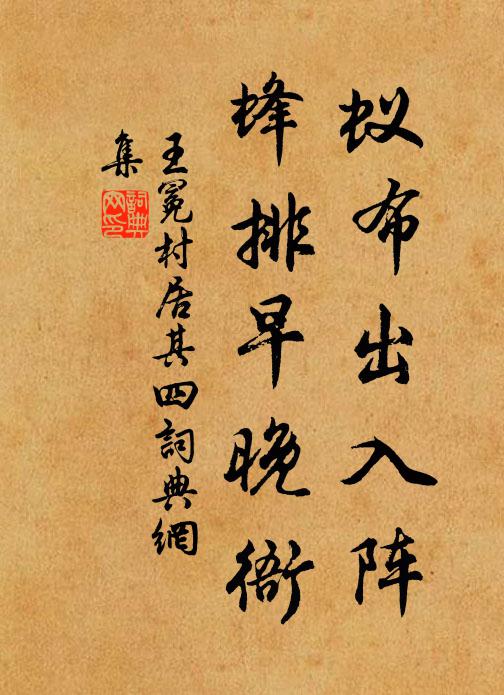 蚁布出入阵
蜂排早晚衙
王冕村居其四詞典網
集
詞典
网印